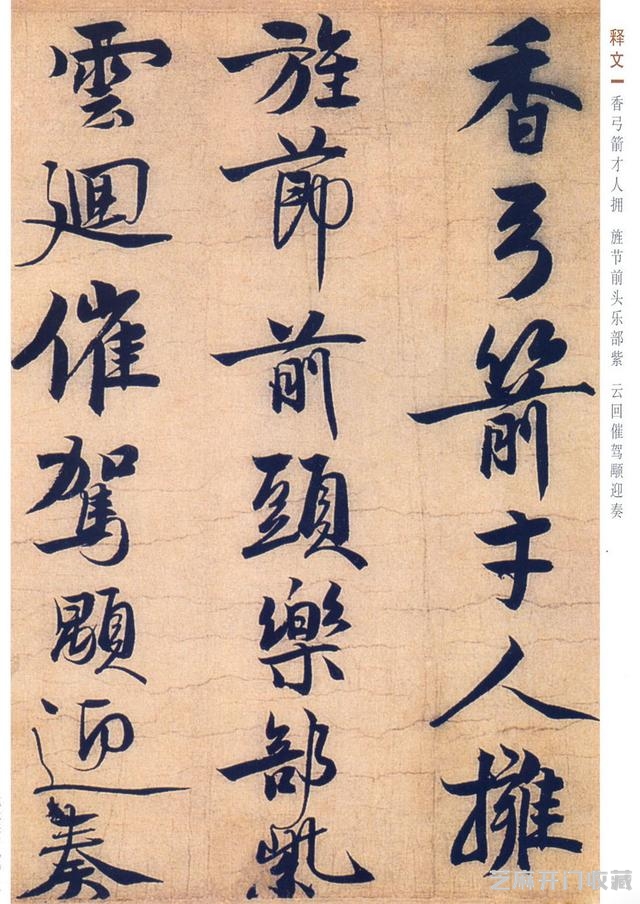 香弓箭才人擁
旌節前頭樂部紫
雲迴催駕顒迎奏
释文 香弓箭才人拥 旌节前头乐部紫 云回催驾顒迎奏
芝麻开门收藏